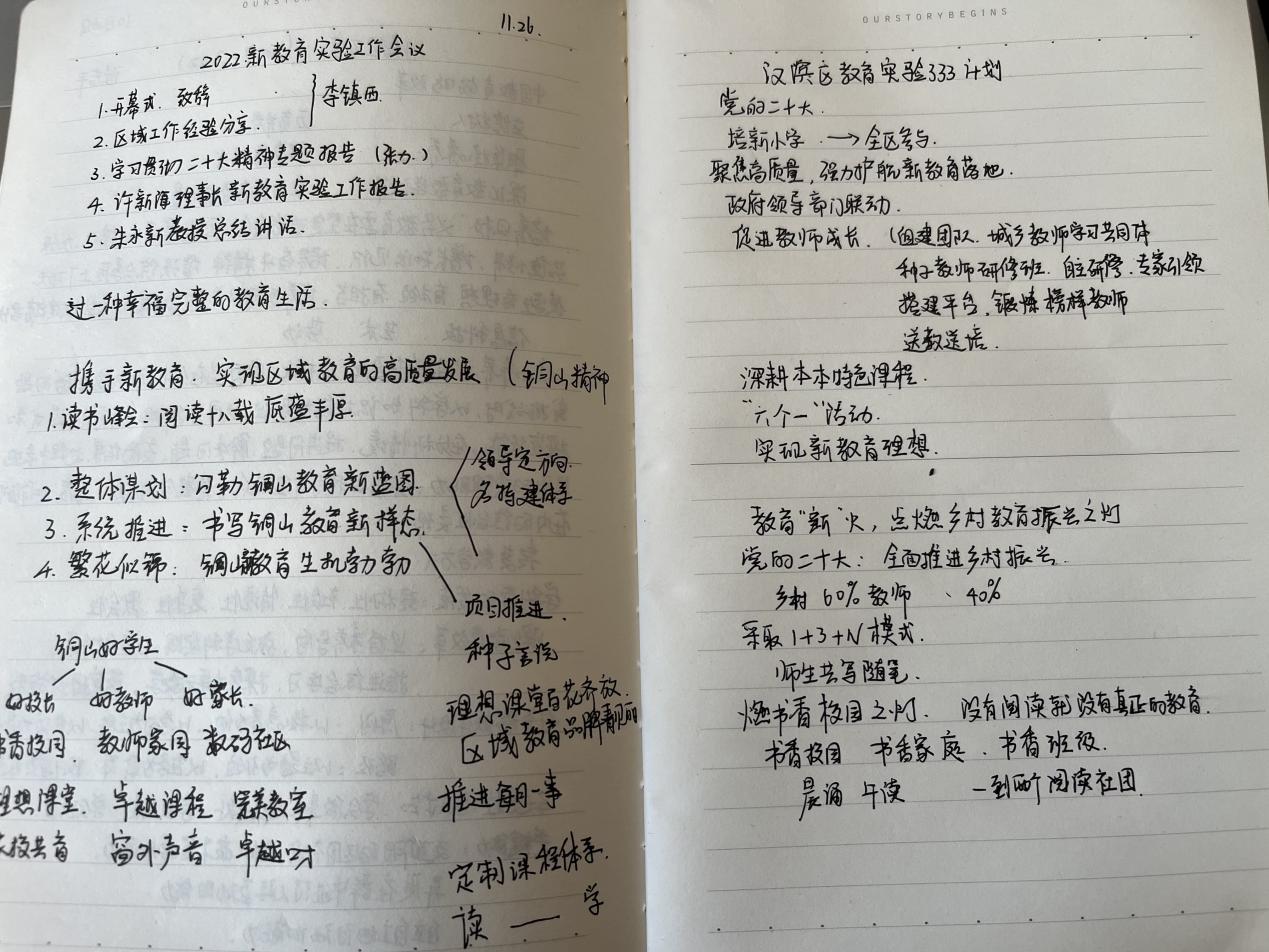 11.26.
2022新教育实验工作会议
1.开幕式. 致辞
李镇西.
2.区域工作经验分享.
3.学习贯彻二十大精神专题报告 (张力.)
4.许新海理事长新教育实验工作报告.
5.朱永新教授总结讲话.
过一种幸福完整的教育生活.
携手新教育. 实现区域教育的高质量发展 (铜山精神
1.读书峰会: 阅读十八载 底蕴丰厚
2.整体谋划: 勾勒铜山教育新蓝图.
领导定方向.
名特建体系
3.系统推进: 书写铜山教育新样态.
4.繁花似锦: 铜山教育生机勃勃
项目推进.
铜山好学生
种子言说
好校长 好教师 好家长.
理想课堂百花齐放.
书香校园 教师家园 数码社区
区域教育品牌靓丽
理想课堂. 卓越课程 完美教室
推进每月一事
家校共育 窗外声音 卓越口才
定制课程体系.
读 —— 学
OURSTORYBEGINS
汉滨区教育实验333计划
党的二十大.
培新小学. → 全区参与.
聚焦高质量, 强力护航新教育落地.
政府领导部门联动.
促进教师成长. (组建团队. 城乡教师学习共同体
种子教师研修班. 自主研修. 专家引领
搭建平台. 锻炼榜样教师
送教送培.
深耕本本特色课程.
“六个一”活动.
实现新教育理想.
教育“新”火, 点燃乡村教育振兴之灯
党的二十大: 全面推进乡村振兴.
乡村 60%教师 、40%
采取1+3+N模式.
师生共写随笔.
燃书香校园之灯. 没有阅读就没有真正的教育.
书香校园 书香家庭. 书香班级.
晨诵 午读 一到两个阅读社团.